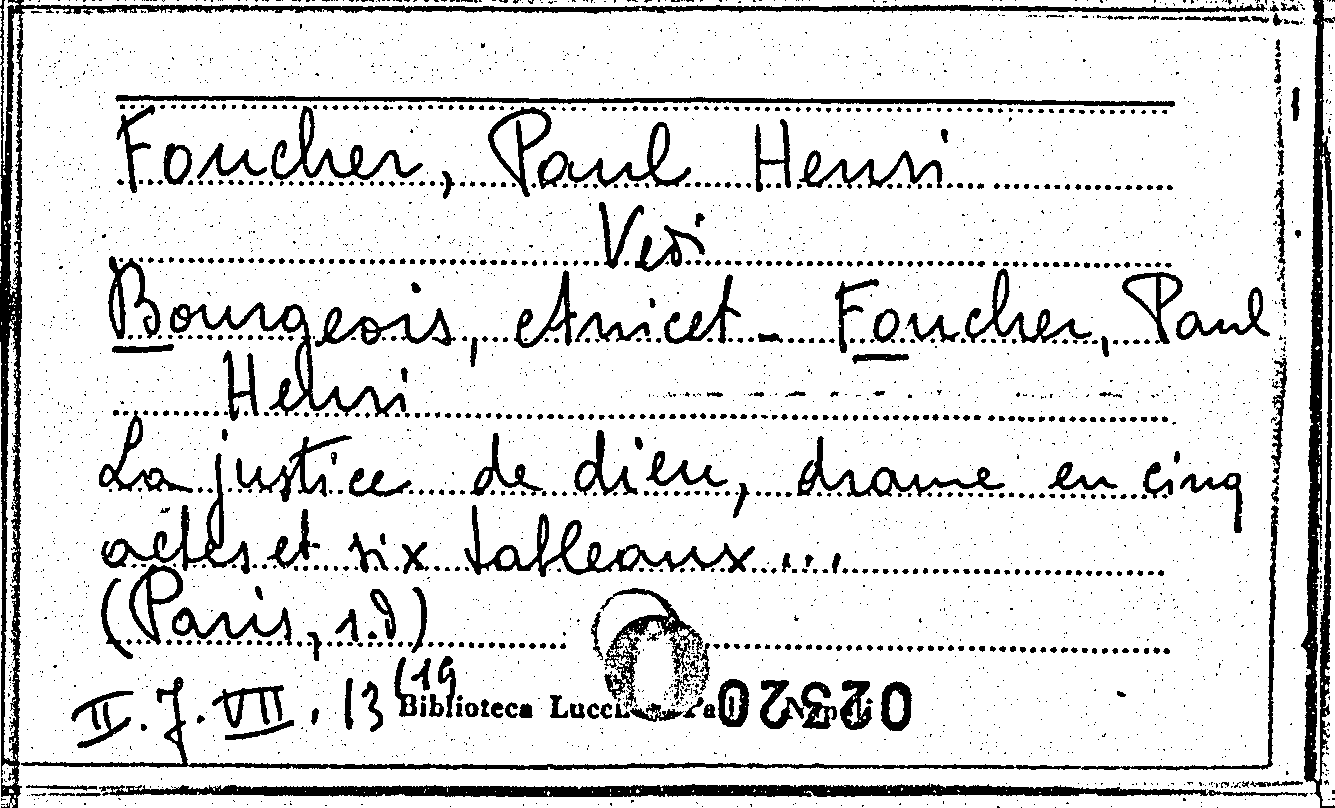 Foucher, Paul Henri
Vedi
Bourgeois, Anicet - Foucher, Paul
Henri
La justice de dieu, drame en cinq
actes et six tableaux ...
(Paris, s.d)
II. J. VII. 13 (19
Biblioteca